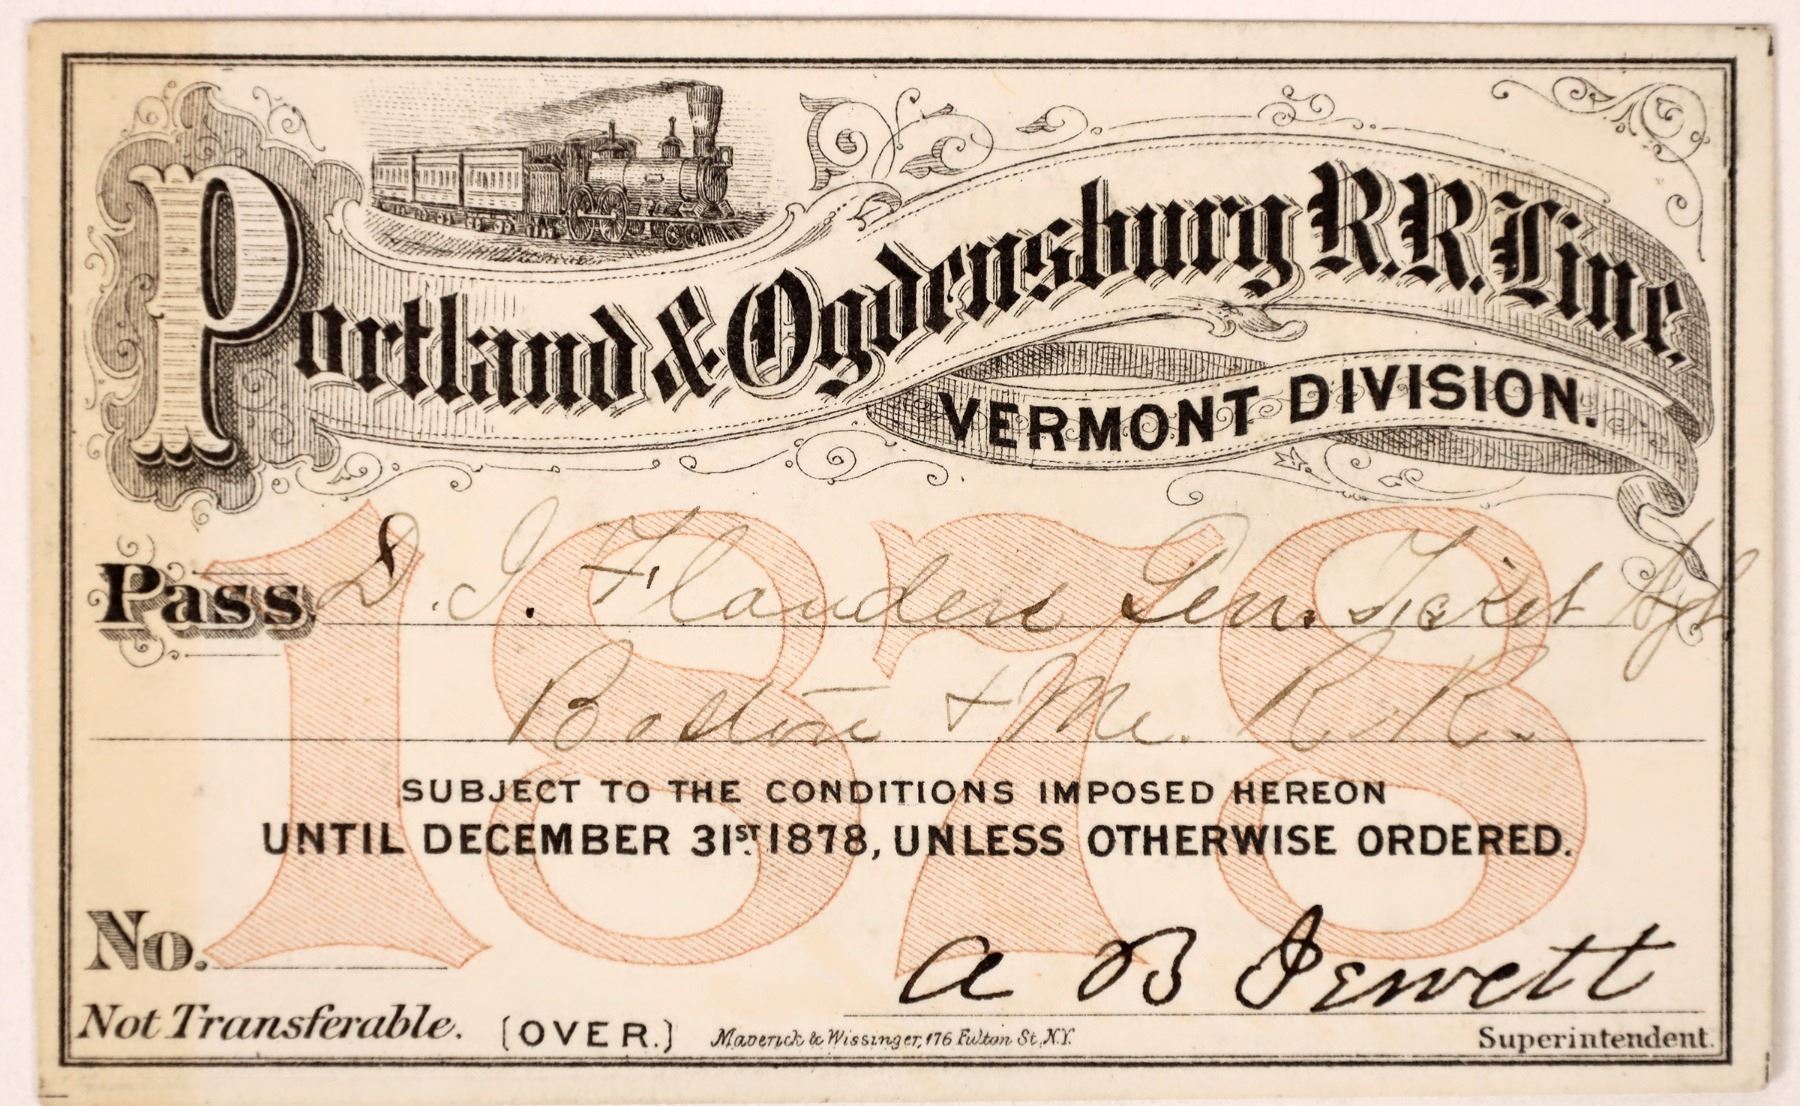 Portland & Ogdensburg R.R. Line,
VERMONT DIVISION.
1878
Pass D. J. Flanders Gen. Ticket Agt
Boston & Me. R. R.
SUBJECT TO THE CONDITIONS IMPOSED HEREON
UNTIL DECEMBER 31ST. 1878, UNLESS OTHERWISE ORDERED.
No.
A B Jewett
Not Transferable. (OVER.) Maverick & Wissinger, 176 Fulton St, N.Y. Superintendent.